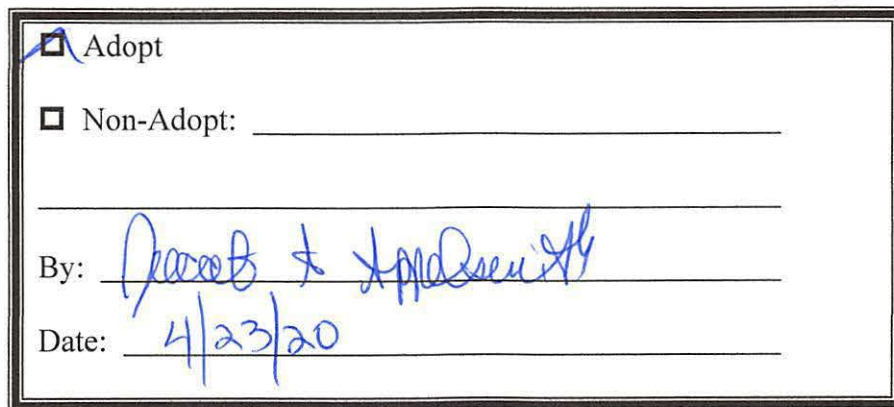 ☐ Adopt
☐ Non-Adopt:
By:
Date: 4/23/20